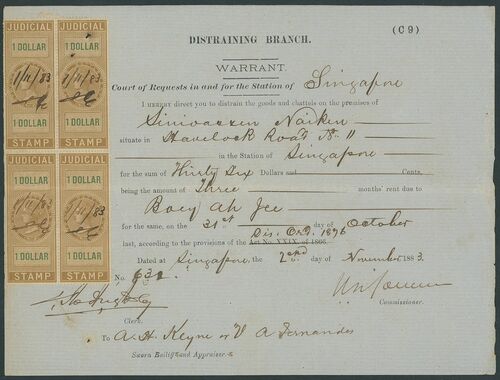 (C9)
DISTRAINING BRANCH.
WARRANT.
Court of Requests in and for the Station of Singapore
I HEREBY direct you to distrain the goods and chattels on the premises of
Naiken
situate in Havelock Road No. 11
in the Station of Singapore
for the sum of Thirty Six Dollars and Cents,
being the amount of Three months' rent due to
Boey Ah Jee
for the same, on the 31st day of October
Dis. Ord. 1876
last, according to the provisions of the Act No. XXIX. of 1866.
Dated at Singapore, the 2nd day of November 1883.
No. 632
Commissioner.
Clerk.
To A. H. Keyne or V A Fernandes
Sworn Bailiff and Appraiser.
JUDICIAL
1 DOLLAR
1/11/83
1 DOLLAR
STAMP
JUDICIAL
1 DOLLAR
1/11/83
1 DOLLAR
STAMP
JUDICIAL
1 DOLLAR
1/11/83
1 DOLLAR
STAMP
JUDICIAL
1 DOLLAR
1/11/83
1 DOLLAR
STAMP